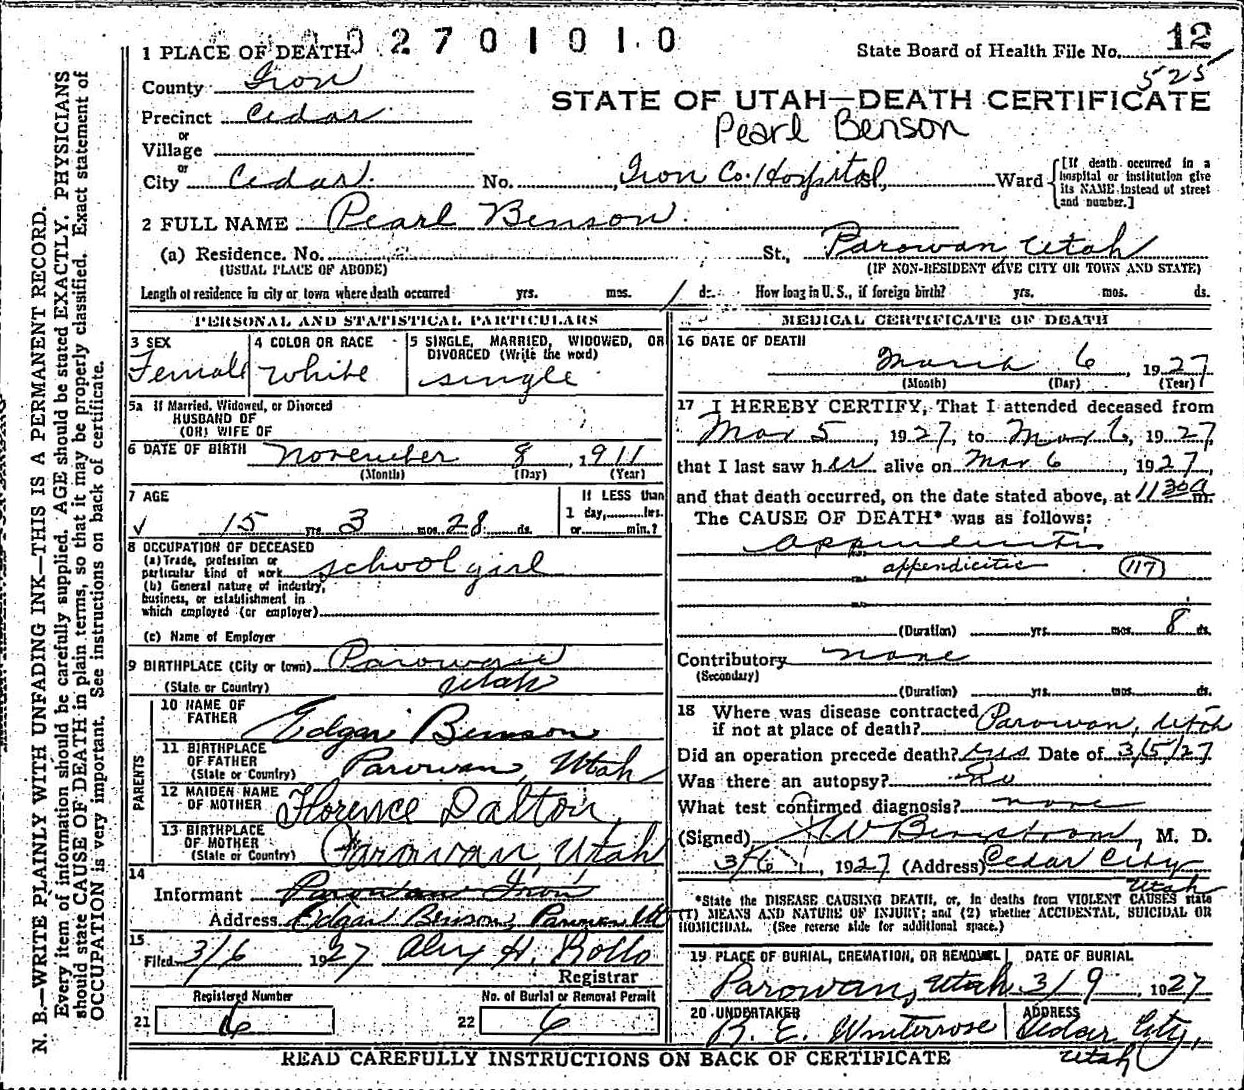 2701010
State Board of Health File No. 12
525
1 PLACE OF DEATH
County Iron
STATE OF UTAH—DEATH CERTIFICATE
Precinct Cedar
Pearl Benson
or
Village
or
City Cedar. No. , Iron Co. Hospital St., Ward
[If death occurred in a
hospital or institution give
its NAME instead of street
and number.]
2 FULL NAME Pearl Benson
(a) Residence. No. St., Parowan, Utah
(USUAL PLACE OF ABODE) (IF NON-RESIDENT GIVE CITY OR TOWN AND STATE)
Length of residence in city or town where death occurred yrs. mos. 1 ds. How long in U. S., if foreign birth? yrs. mos. ds.
PERSONAL AND STATISTICAL PARTICULARS
3 SEX
Female
4 COLOR OR RACE
White
5 SINGLE, MARRIED, WIDOWED, OR
DIVORCED (Write the word)
single
5a If Married, Widowed, or Divorced
HUSBAND OF
(OR) WIFE OF
6 DATE OF BIRTH November 8, 1911
(Month) (Day) (Year)
7 AGE
15 yrs. 3 mos. 28 ds.
If LESS than
1 day, hrs.
or min.?
8 OCCUPATION OF DECEASED
(a) Trade, profession or
particular kind of work school girl
(b) General nature of industry,
business, or establishment in
which employed (or employer)
(c) Name of Employer
9 BIRTHPLACE (City or town) Parowan
(State or Country) Utah
PARENTS
10 NAME OF
FATHER Edgar Benson
11 BIRTHPLACE
OF FATHER
(State or Country) Parowan, Utah
12 MAIDEN NAME
OF MOTHER Florence Dalton
13 BIRTHPLACE
OF MOTHER
(State or Country) Parowan Utah
14
Informant Parowan Iron
Address Edgar Benson, Parowan Ut
15
Filed 3/6 1927 Alex H. Rollo
Registrar
Registered Number
21 6
No. of Burial or Removal Permit
22 6
MEDICAL CERTIFICATE OF DEATH
16 DATE OF DEATH
March 6, 1927
(Month) (Day) (Year)
17 I HEREBY CERTIFY, That I attended deceased from
Mar 5, 1927, to Mar 6, 1927,
that I last saw her alive on Mar 6, 1927,
and that death occurred, on the date stated above, at 11 30 a m.
The CAUSE OF DEATH* was as follows:
appendicitis
appendicitis (117)
(Duration) yrs. mos. 8 ds.
Contributory none
(Secondary)
(Duration) yrs. mos. ds.
18 Where was disease contracted
if not at place of death? Parowan, Utah
Did an operation precede death? yes Date of 3/5/27
Was there an autopsy? No
What test confirmed diagnosis? none
(Signed) Bergstrom, M. D.
3/6, 1927 (Address) Cedar City
Utah
*State the DISEASE CAUSING DEATH, or, in deaths from VIOLENT CAUSES state
(1) MEANS AND NATURE OF INJURY; and (2) whether ACCIDENTAL, SUICIDAL OR
HOMICIDAL. (See reverse side for additional space.)
19 PLACE OF BURIAL, CREMATION, OR REMOVAL
Parowan, Utah
DATE OF BURIAL
3/9, 1927
20 UNDERTAKER
ADDRESS
Cedar City,
Utah
READ CAREFULLY INSTRUCTIONS ON BACK OF CERTIFICATE
N. B.—WRITE PLAINLY WITH UNFADING INK—THIS IS A PERMANENT RECORD.
Every item of information should be carefully supplied. AGE should be stated EXACTLY. PHYSICIANS
should state CAUSE OF DEATH in plain terms, so that it may be properly classified. Exact statement of
OCCUPATION is very important. See instructions on back of certificate.